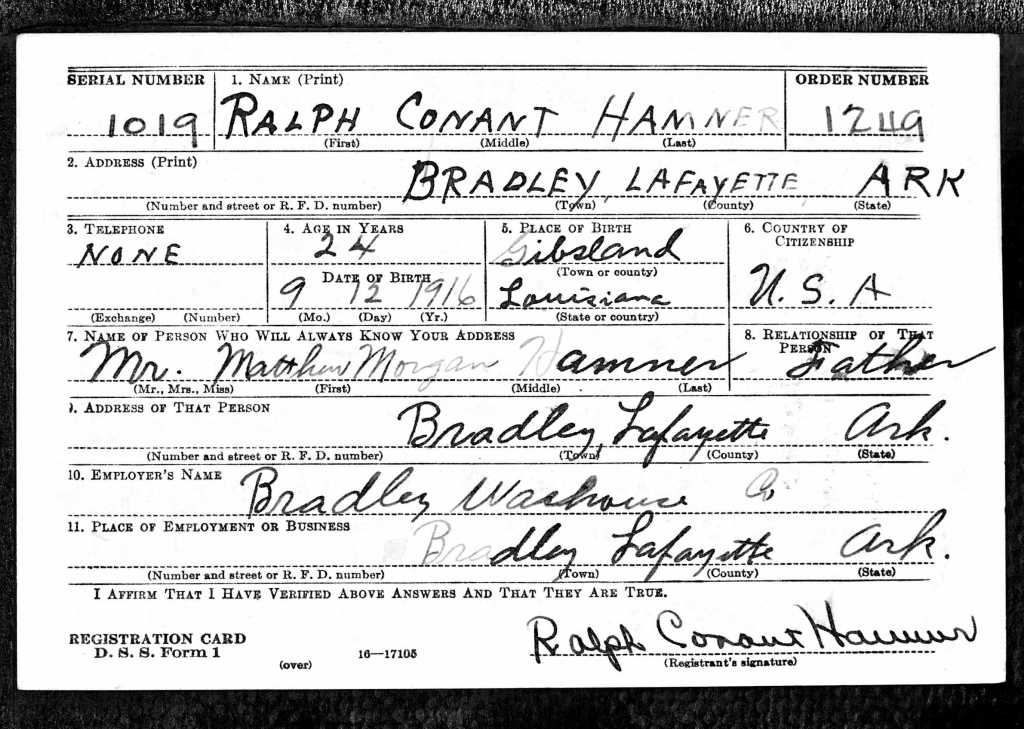 SERIAL NUMBER 1. NAME (Print) ORDER NUMBER
1019 RALPH CONANT HAMNER 1249
(First) (Middle) (Last)
2. ADDRESS (Print)
BRADLEY, LAFAYETTE ARK
(Number and street or R. F. D. number) (Town) (County) (State)
3. TELEPHONE 4. AGE IN YEARS 5. PLACE OF BIRTH 6. COUNTRY OF CITIZENSHIP
NONE 24 Gibsland
DATE OF BIRTH (Town or county)
9 12 1916 Louisiana U. S. A
(Exchange) (Number) (Mo.) (Day) (Yr.) (State or country)
7. NAME OF PERSON WHO WILL ALWAYS KNOW YOUR ADDRESS 8. RELATIONSHIP OF THAT PERSON
Mr. Matthew Morgan Hamner Father
(Mr., Mrs., Miss) (First) (Middle) (Last)
9. ADDRESS OF THAT PERSON
Bradley, Lafayette Ark.
(Number and street or R. F. D. number) (Town) (County) (State)
10. EMPLOYER'S NAME
Bradley Co
11. PLACE OF EMPLOYMENT OR BUSINESS
Bradley Lafayette Ark.
(Number and street or R. F. D. number) (Town) (County) (State)
I AFFIRM THAT I HAVE VERIFIED ABOVE ANSWERS AND THAT THEY ARE TRUE.
REGISTRATION CARD
D. S. S. Form 1
(over) 16—17105
Ralph Conant Hamner
(Registrant's signature)